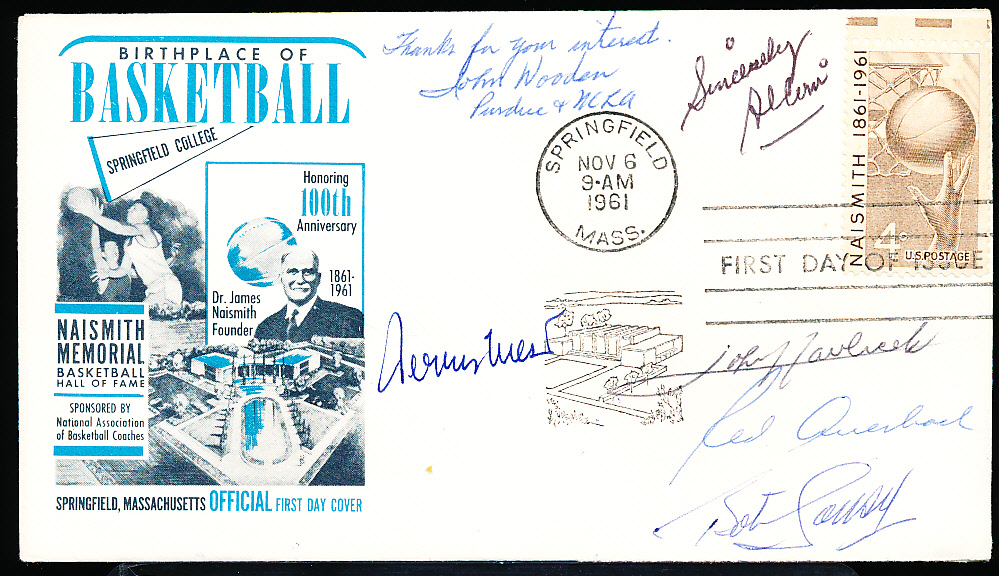 BIRTHPLACE OF
BASKETBALL
SPRINGFIELD COLLEGE
Honoring
100th
Anniversary
1861-
1961
Dr. James
Naismith
Founder
NAISMITH
MEMORIAL
BASKETBALL
HALL OF FAME
SPONSORED BY
National Association
of Basketball Coaches
SPRINGFIELD, MASSACHUSETTS OFFICIAL FIRST DAY COVER
Thanks for your interest.
John Wooden
Purdue & UCLA
Sincerely
Al Cervi
SPRINGFIELD
NOV 6
9-AM
1961
MASS.
NAISMITH 1861-1961
4c
U.S. POSTAGE
FIRST DAY OF ISSUE
Jerry West
John Havlicek
Red Auerbach
Bob Cousy